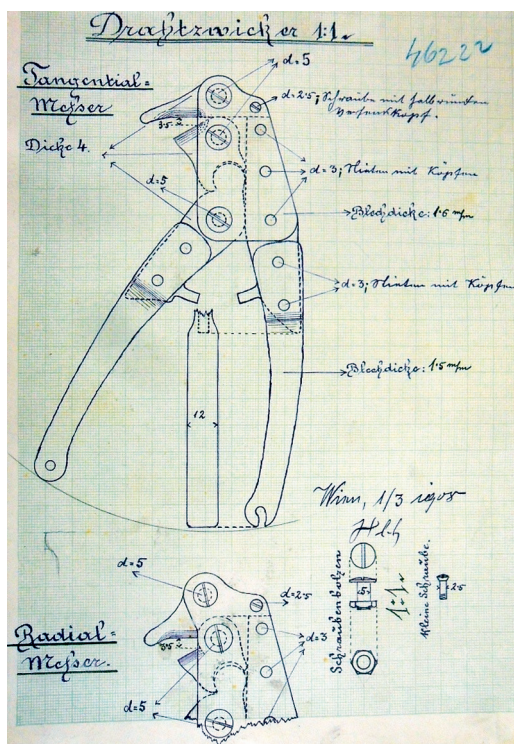 Drahtzwicker 1:1.
46222
Tangential=
Messer
d=5
d=2·5; Schraube mit halbrundem
Versenkkopf.
3·5
Dicke 4.
d=3; Nieten mit Köpfen
d=5
Blechdicke: 1·5 m/m
d=3; Nieten mit Köpfen
Blechdicke: 1·5 m/m
12
Wien, 1/3 1908
d=5
d=2·5
Radial=
Messer.
3·5
d=3
d=5
Schraubenbolzen
5
1:1.
kleine Schraube.
2·5